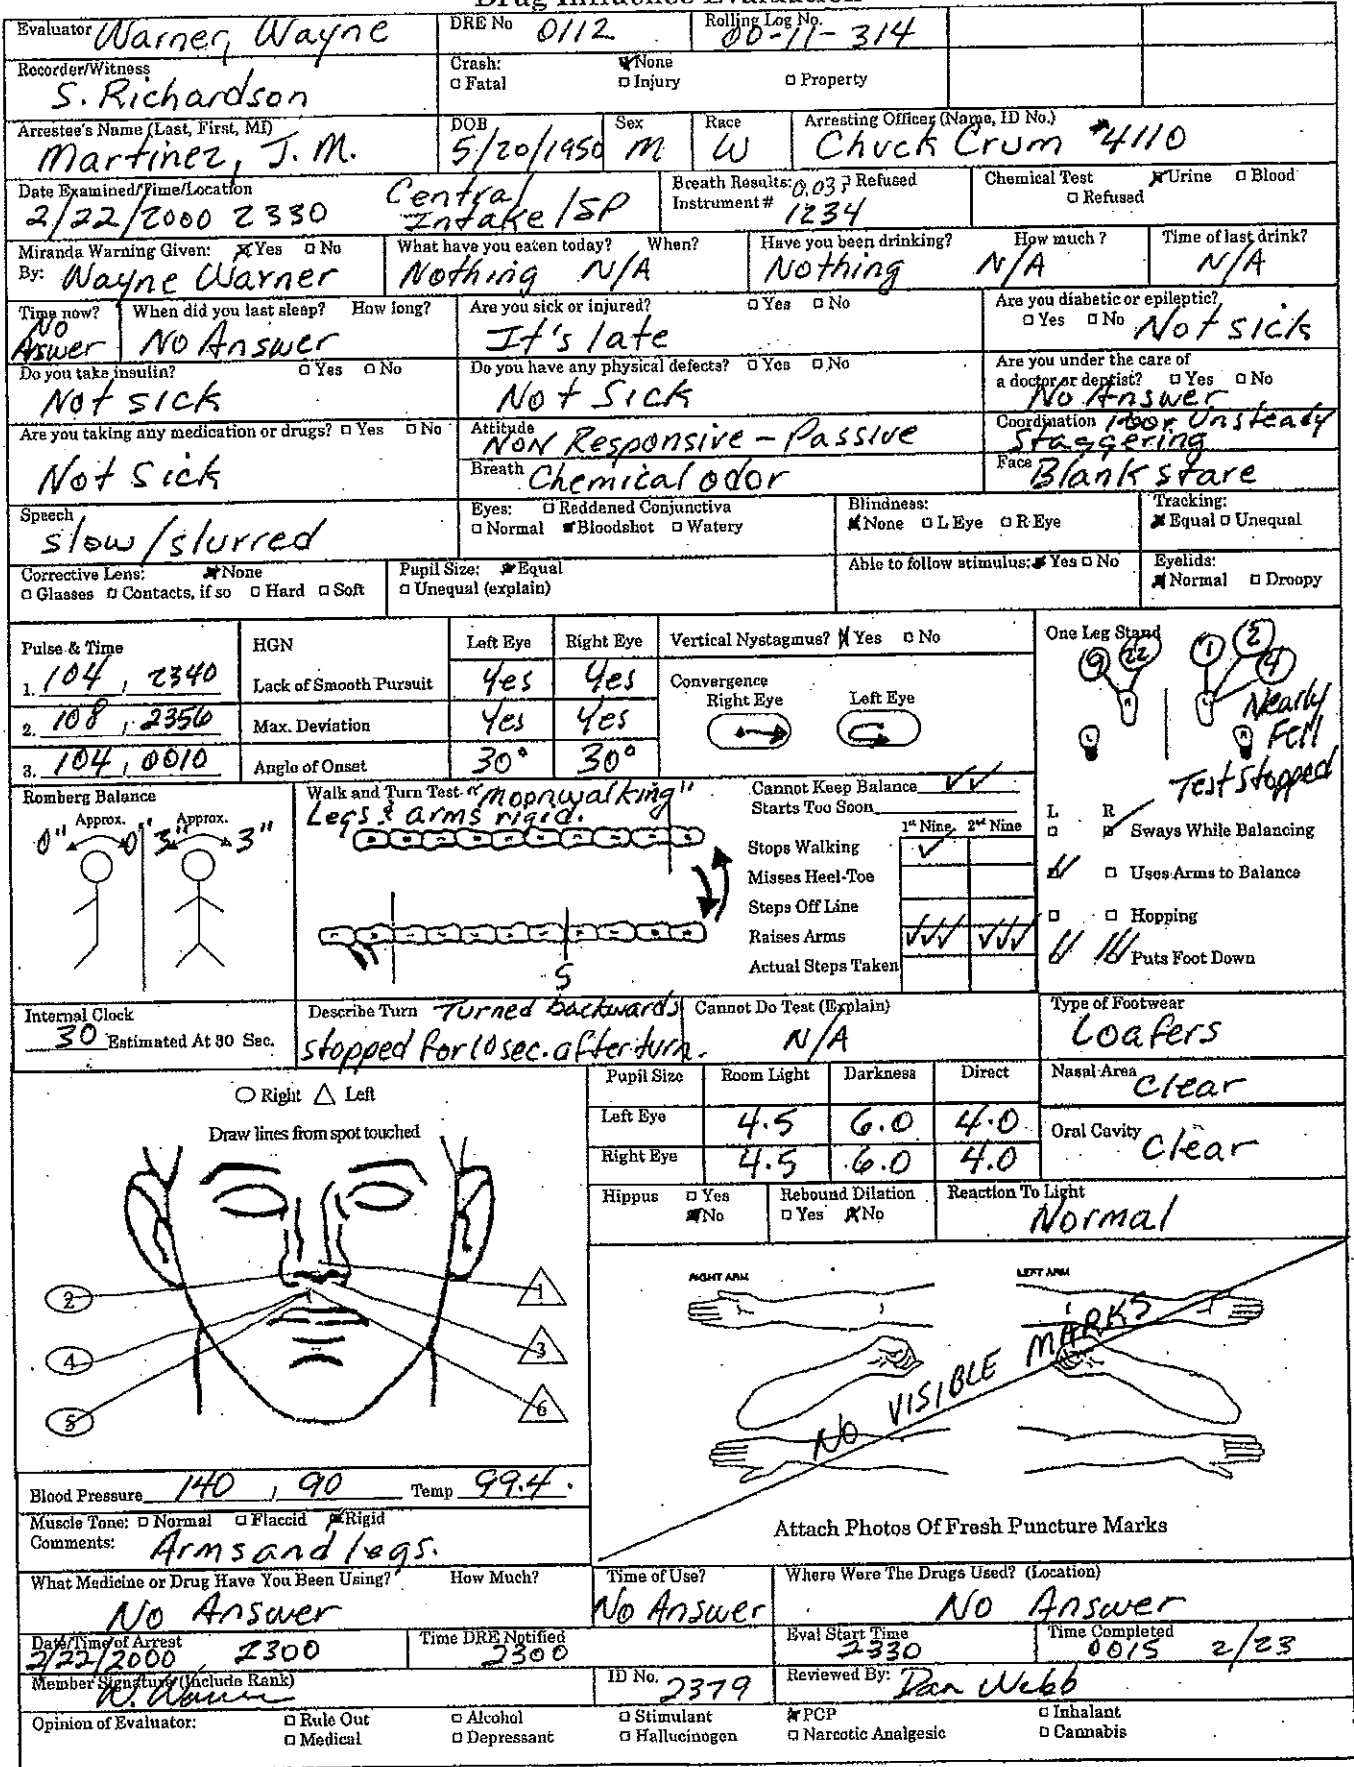 Drug Influence Evaluation
Evaluator Warner, Wayne DRE No 0112 Rolling Log No. 00-11-314
Recorder/Witness S. Richardson Crash: None Fatal Injury Property
Arrestee's Name (Last, First, MI) Martinez, J.M. DOB 5/20/1950 Sex M Race W Arresting Officer (Name, ID No.) Chuck Crum #4110
Date Examined/Time/Location 2/22/2000 2330 Central Intake /SP Breath Results: 0.03 Refused Instrument # 1234 Chemical Test Urine Blood Refused
Miranda Warning Given: Yes No By: Wayne Warner What have you eaten today? When? Nothing N/A Have you been drinking? How much ? Nothing N/A Time of last drink? N/A
Time now? No Answer When did you last sleep? How long? No Answer Are you sick or injured? Yes No It's late Are you diabetic or epileptic? Yes No Not sick
Do you take insulin? Yes No Not sick Do you have any physical defects? Yes No Not Sick Are you under the care of a doctor or dentist? Yes No No Answer
Are you taking any medication or drugs? Yes No Not Sick Attitude Non Responsive - Passive Coordination Poor Unsteady Staggering
Breath Chemical odor Face Blank stare
Speech slow/slurred Eyes: Reddened Conjunctiva Normal Bloodshot Watery Blindness: None L Eye R Eye Tracking: Equal Unequal
Corrective Lens: None Glasses Contacts, if so Hard Soft Pupil Size: Equal Unequal (explain) Able to follow stimulus: Yes No Eyelids: Normal Droopy
Pulse & Time HGN Left Eye Right Eye Vertical Nystagmus? Yes No One Leg Stand
1. 104, 2340 Lack of Smooth Pursuit Yes Yes Convergence Right Eye Left Eye
2. 108, 2356 Max. Deviation Yes Yes
3. 104, 0010 Angle of Onset 30° 30°
9 22 1 2 4
R L
L R
Nearly Fell
Test Stopped
Romberg Balance Walk and Turn Test "Moonwalking" Cannot Keep Balance
Legs & arms rigid. Starts Too Soon
Approx. Approx.
0" 0" 3" 3"
1st Nine 2nd Nine
Stops Walking
Misses Heel-Toe
Steps Off Line
Raises Arms
Actual Steps Taken
S
L R
Sways While Balancing
Uses Arms to Balance
Hopping
Puts Foot Down
Internal Clock 30 Estimated At 30 Sec. Describe Turn Turned backwards stopped for 10 sec. after turn. Cannot Do Test (Explain) N/A Type of Footwear Loafers
Right Left
Draw lines from spot touched
2 1
4 3
5 6
Pupil Size Room Light Darkness Direct Nasal Area Clear
Left Eye 4.5 6.0 4.0 Oral Cavity Clear
Right Eye 4.5 6.0 4.0
Hippus Yes No Rebound Dilation Yes No Reaction To Light Normal
RIGHT ARM LEFT ARM
NO VISIBLE MARKS
Attach Photos Of Fresh Puncture Marks
Blood Pressure 140, 90 Temp 99.4
Muscle Tone: Normal Flaccid Rigid
Comments: Arms and legs.
What Medicine or Drug Have You Been Using? How Much? No Answer Time of Use? No Answer Where Were The Drugs Used? (Location) No Answer
Date/Time of Arrest 2/22/2000, 2300 Time DRE Notified 2300 Eval Start Time 2330 Time Completed 0015 2/23
Member Signature (Include Rank) W. Warner ID No. 2379 Reviewed By: Dan Webb
Opinion of Evaluator: Rule Out Alcohol Stimulant PCP Inhalant
Medical Depressant Hallucinogen Narcotic Analgesic Cannabis